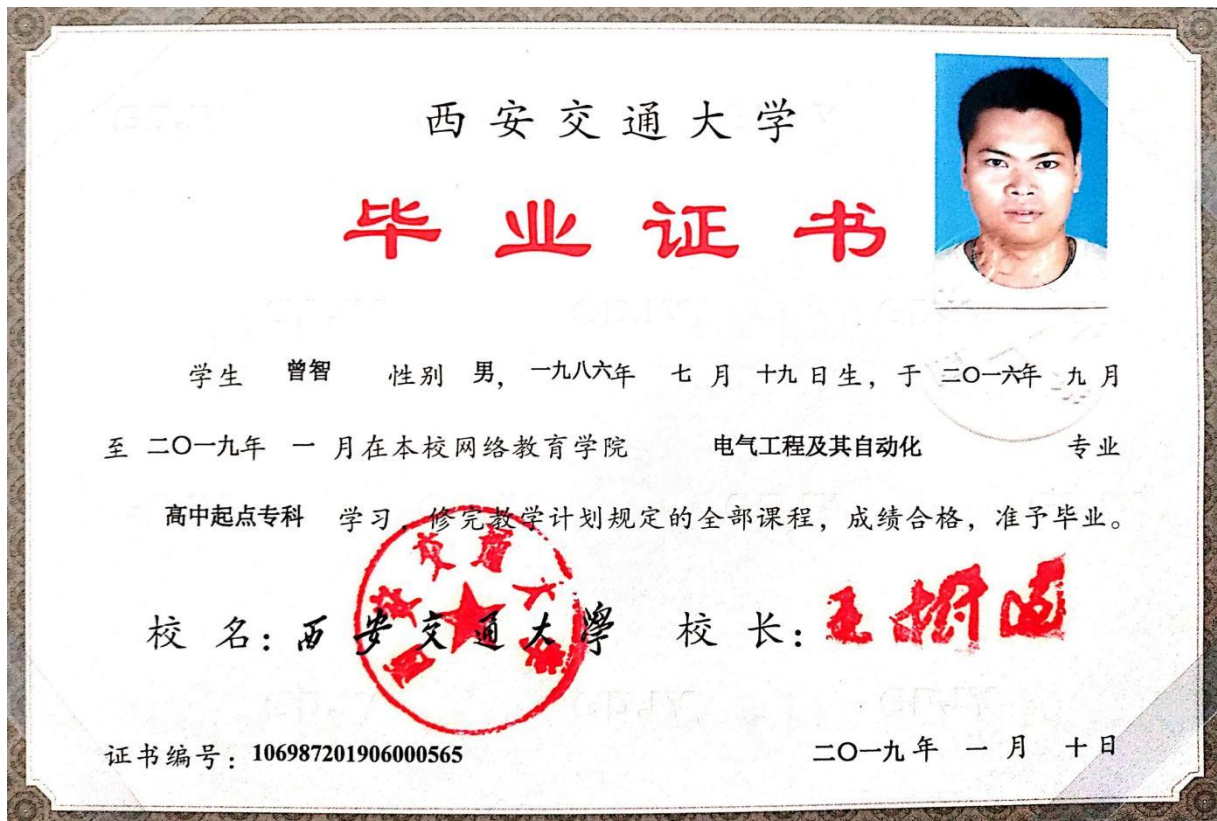 西安交通大学
毕业证书
学生 曾智 性别 男，一九八六年 七月十九日生，于二〇一六年九月
至二〇一九年 一月在本校网络教育学院 电气工程及其自动化 专业
高中起点专科 学习，修完教学计划规定的全部课程，成绩合格，准予毕业。
校名：西安交通大學 校长：王树国
证书编号：106987201906000565
二〇一九年 一月 十日